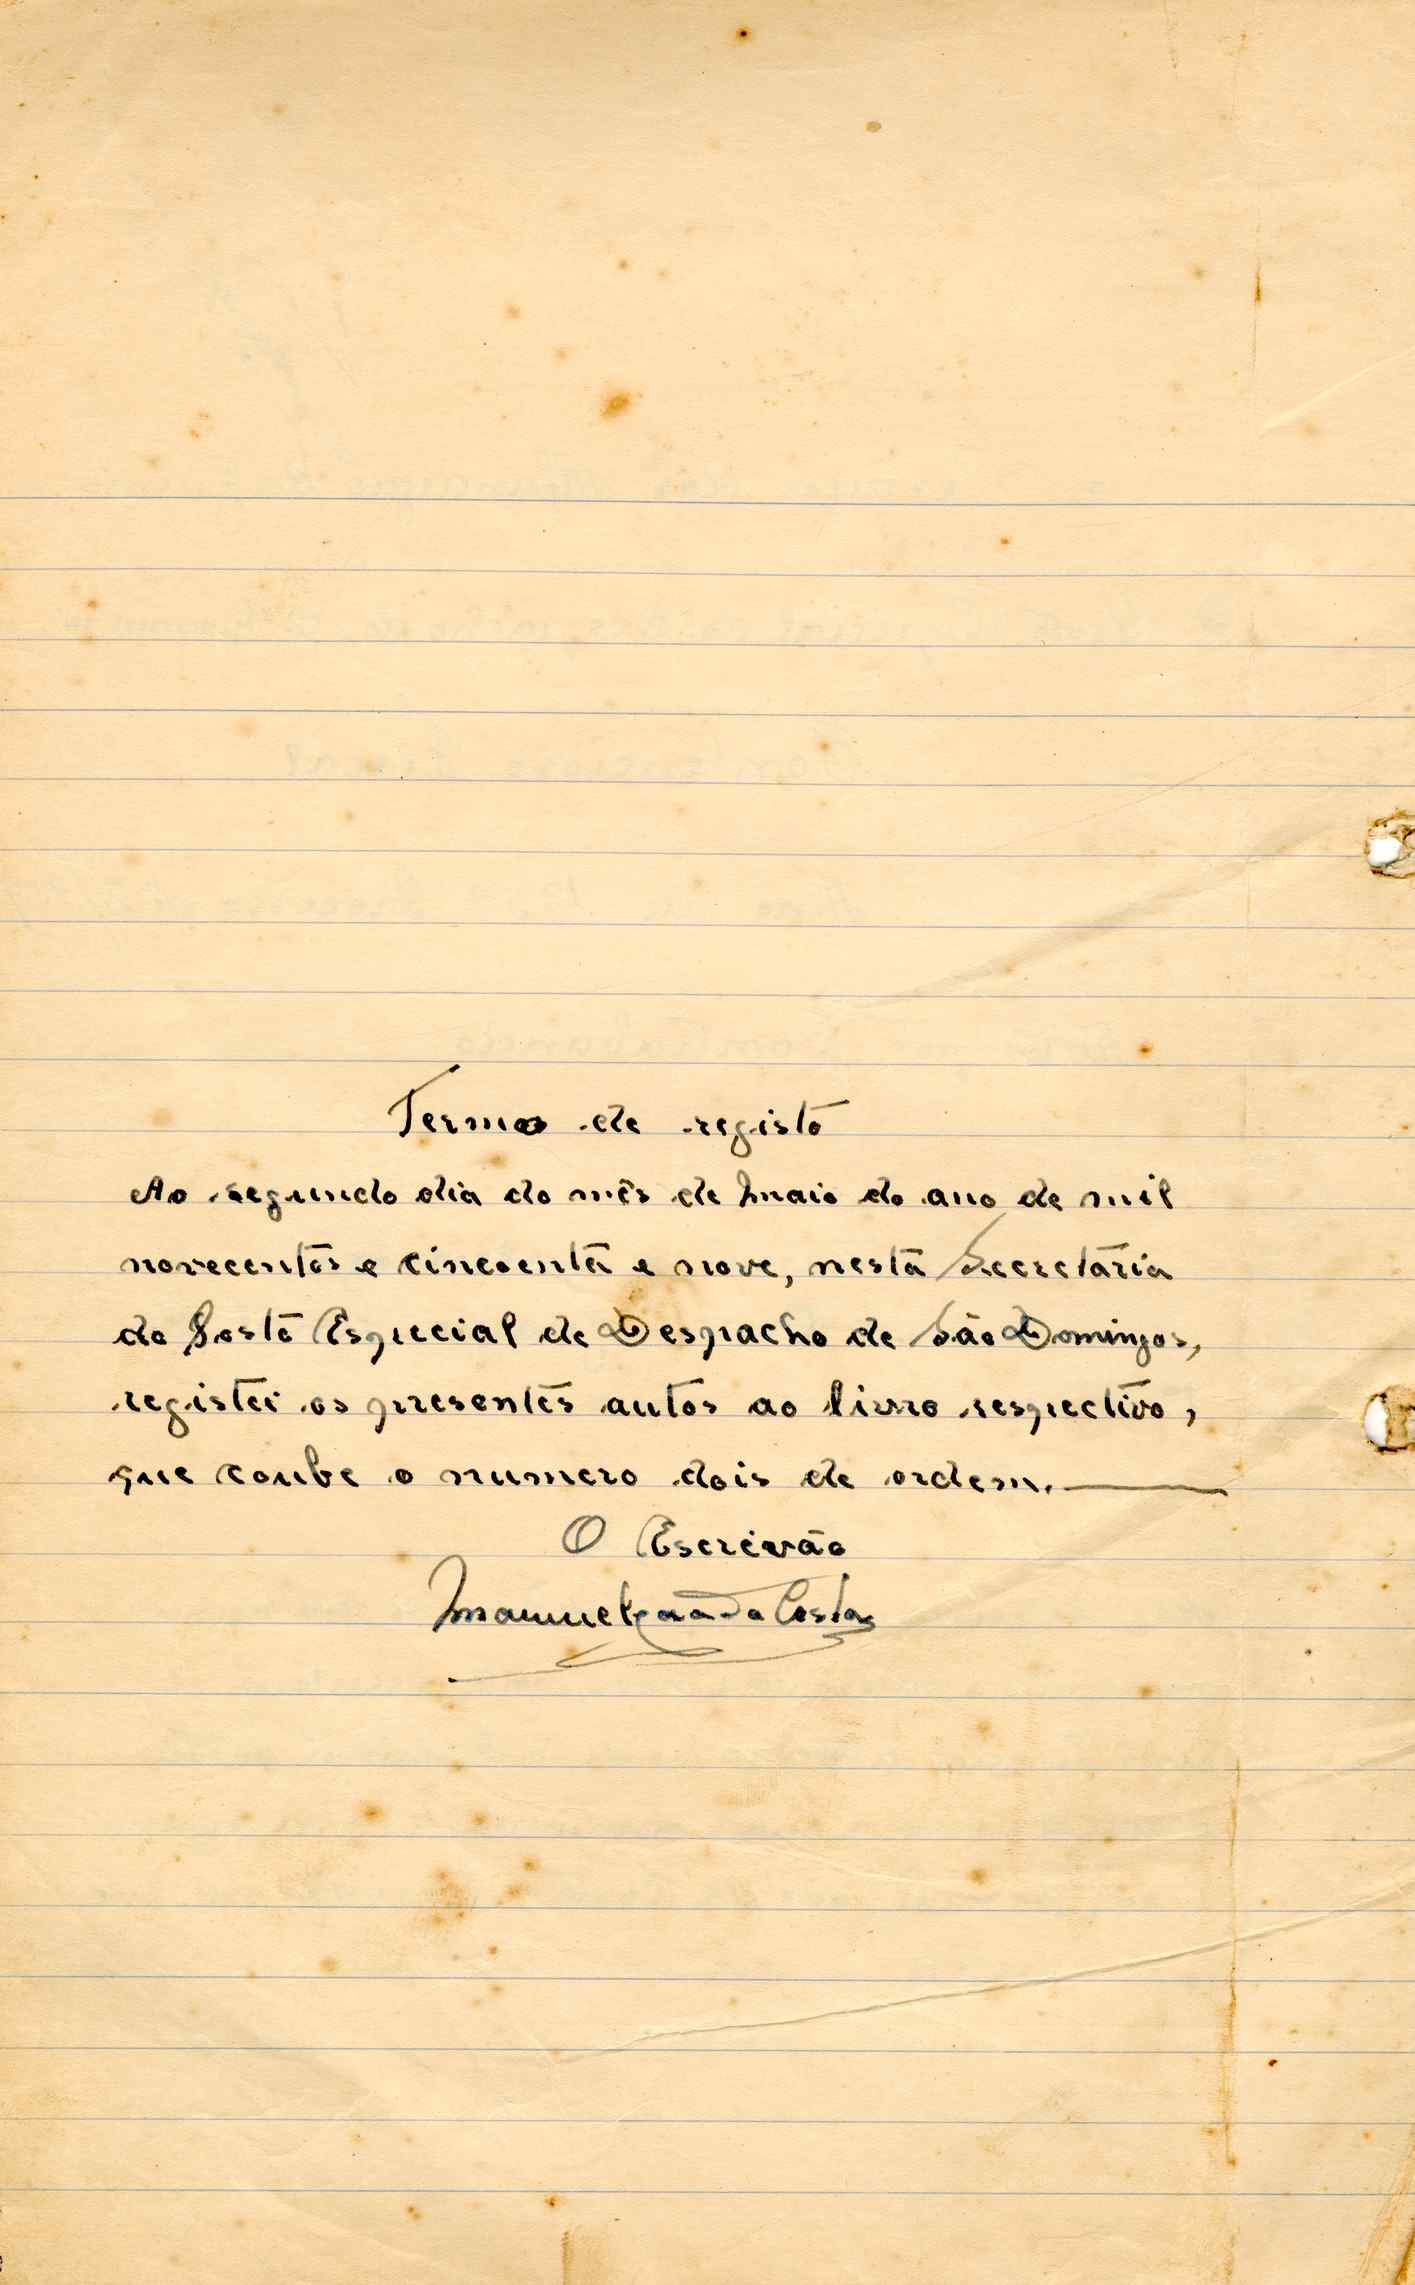 Termo de registo
Ao segundo dia do mês de Maio do ano de mil
novecentos e cincoenta e nove, nesta Secretaria
do Posto Especial de Despacho de São Domingos,
registei os presentes autos ao livro respectivo,
que coube o numero dois de ordem.
O Escrivão
Manuel da Costa